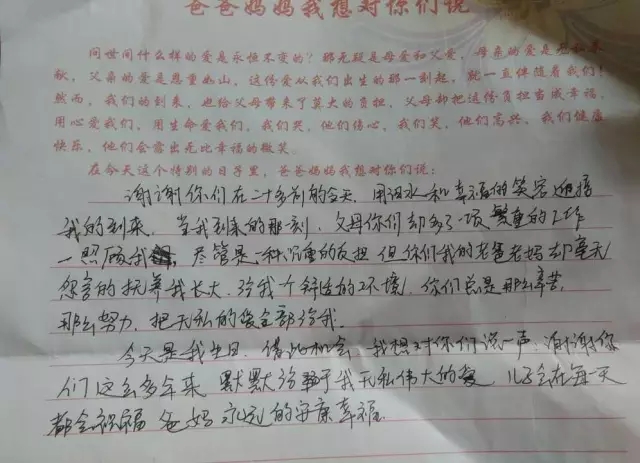 爸爸妈妈我想对你们说
问世间什么样的爱是永恒不变的？那无疑是母爱和父爱，母亲的爱是无私奉
献，父亲的爱是恩重如山，这份爱从我们出生的那一刻起，就一直伴随着我们！
然而，我们的到来，也给父母带来了莫大的负担，父母却把这份负担当成幸福，
用心爱我们，用生命爱我们，我们哭，他们伤心，我们笑，他们高兴，我们健康
快乐，他们会露出无比幸福的微笑。
在今天这个特别的日子里，爸爸妈妈我想对你们说：
谢谢你们在二十多前的今天，用泪水和幸福的笑容迎接
我的到来，当我到来的那刻，父母你们却多了一项繁重的工作
一照顾我，尽管是一种沉重的负担但你们我的老爸老妈却毫无
怨言的抚养我长大，给我个舒适的环境，你们总是那么辛苦，
那么努力，把无私的爱全部给我。
今天是我生日，借此机会，我想对你们说一声：谢谢你
们这么多年来 默默给予我无私伟大的爱，儿子会在每一天
都会祝福爸妈永远的安康幸福。